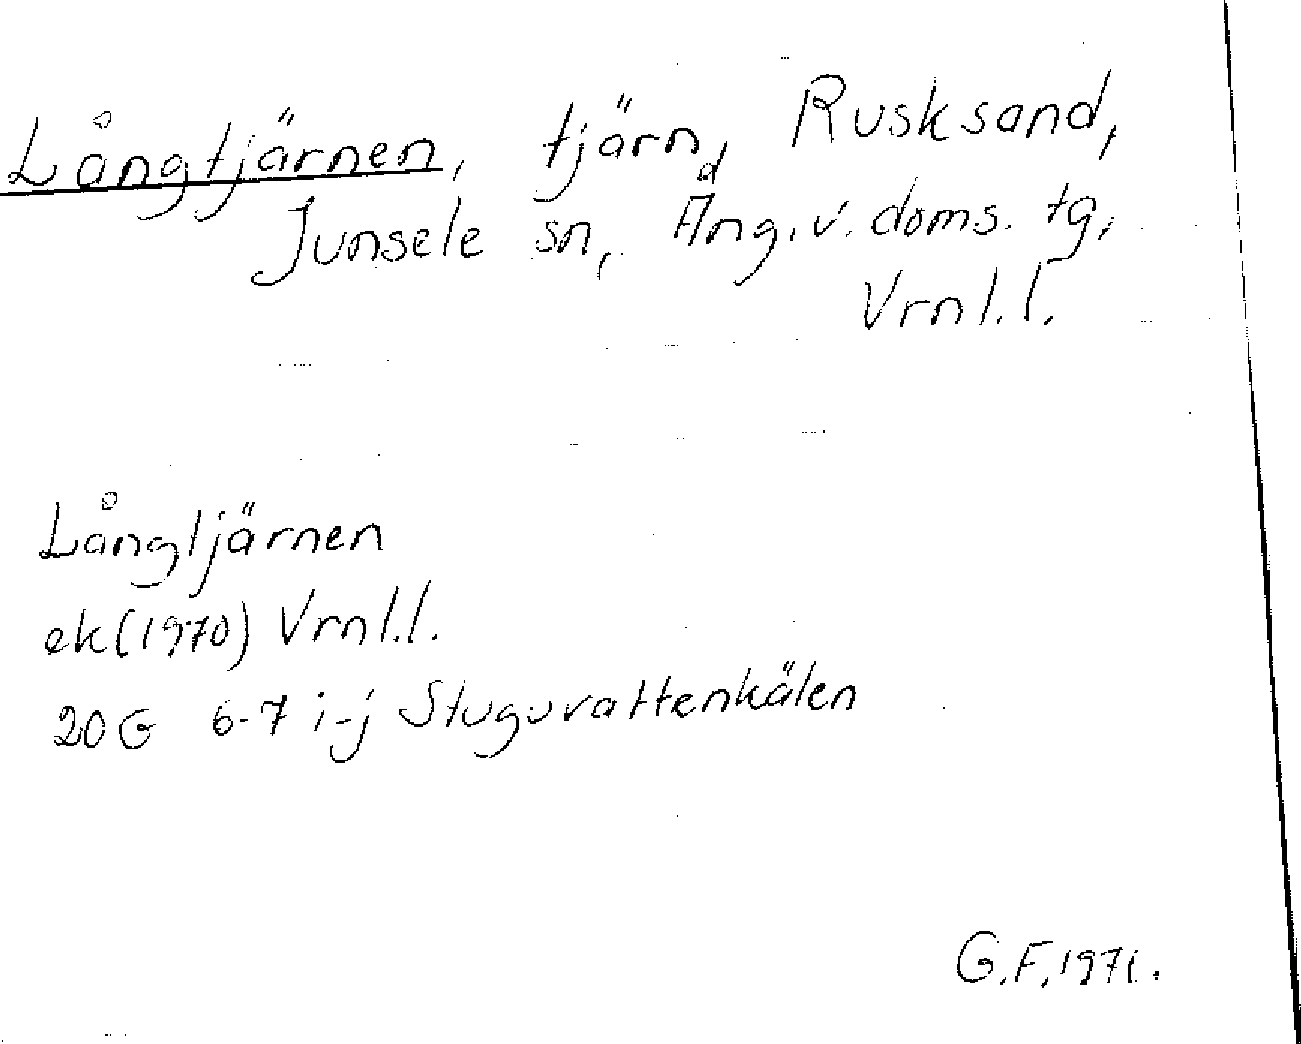 Långtjärnen, tjärn, Rusksand,
Junsele sn, Ång.v.doms.tg,
Vrnl.l.
Långtjärnen
ek(1970) Vrnl.l.
20G 6-7 i-j Stuguvattenkälen
G.F.1971.